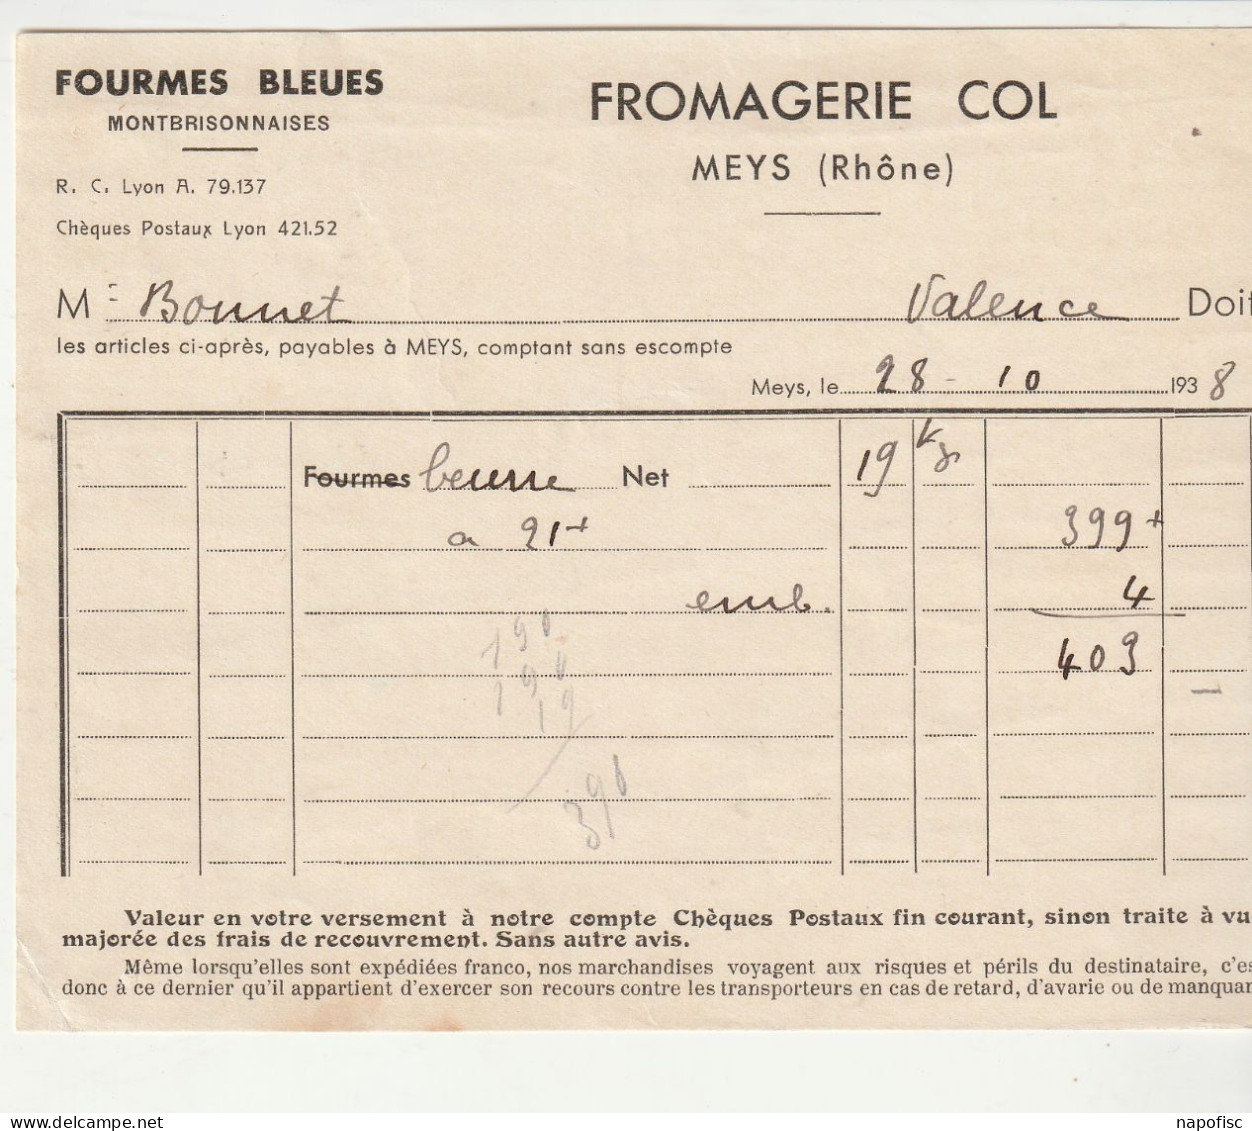 FOURMES BLEUES
MONTBRISONNAISES
R. C. Lyon A. 79.137
Chèques Postaux Lyon 421.52
FROMAGERIE COL
MEYS (Rhône)
M Bonnet Valence Doit
les articles ci-après, payables à MEYS, comptant sans escompte
Meys, le 28 - 10 1938
Fourmes beurre Net 19 Kg
a 21+ 399+
emb. 4
403
190
190
19
398
Valeur en votre versement à notre compte Chèques Postaux fin courant, sinon traite à vu
majorée des frais de recouvrement. Sans autre avis.
Même lorsqu'elles sont expédiées franco, nos marchandises voyagent aux risques et périls du destinataire, c'es
donc à ce dernier qu'il appartient d'exercer son recours contre les transporteurs en cas de retard, d'avarie ou de manquan
napofisc